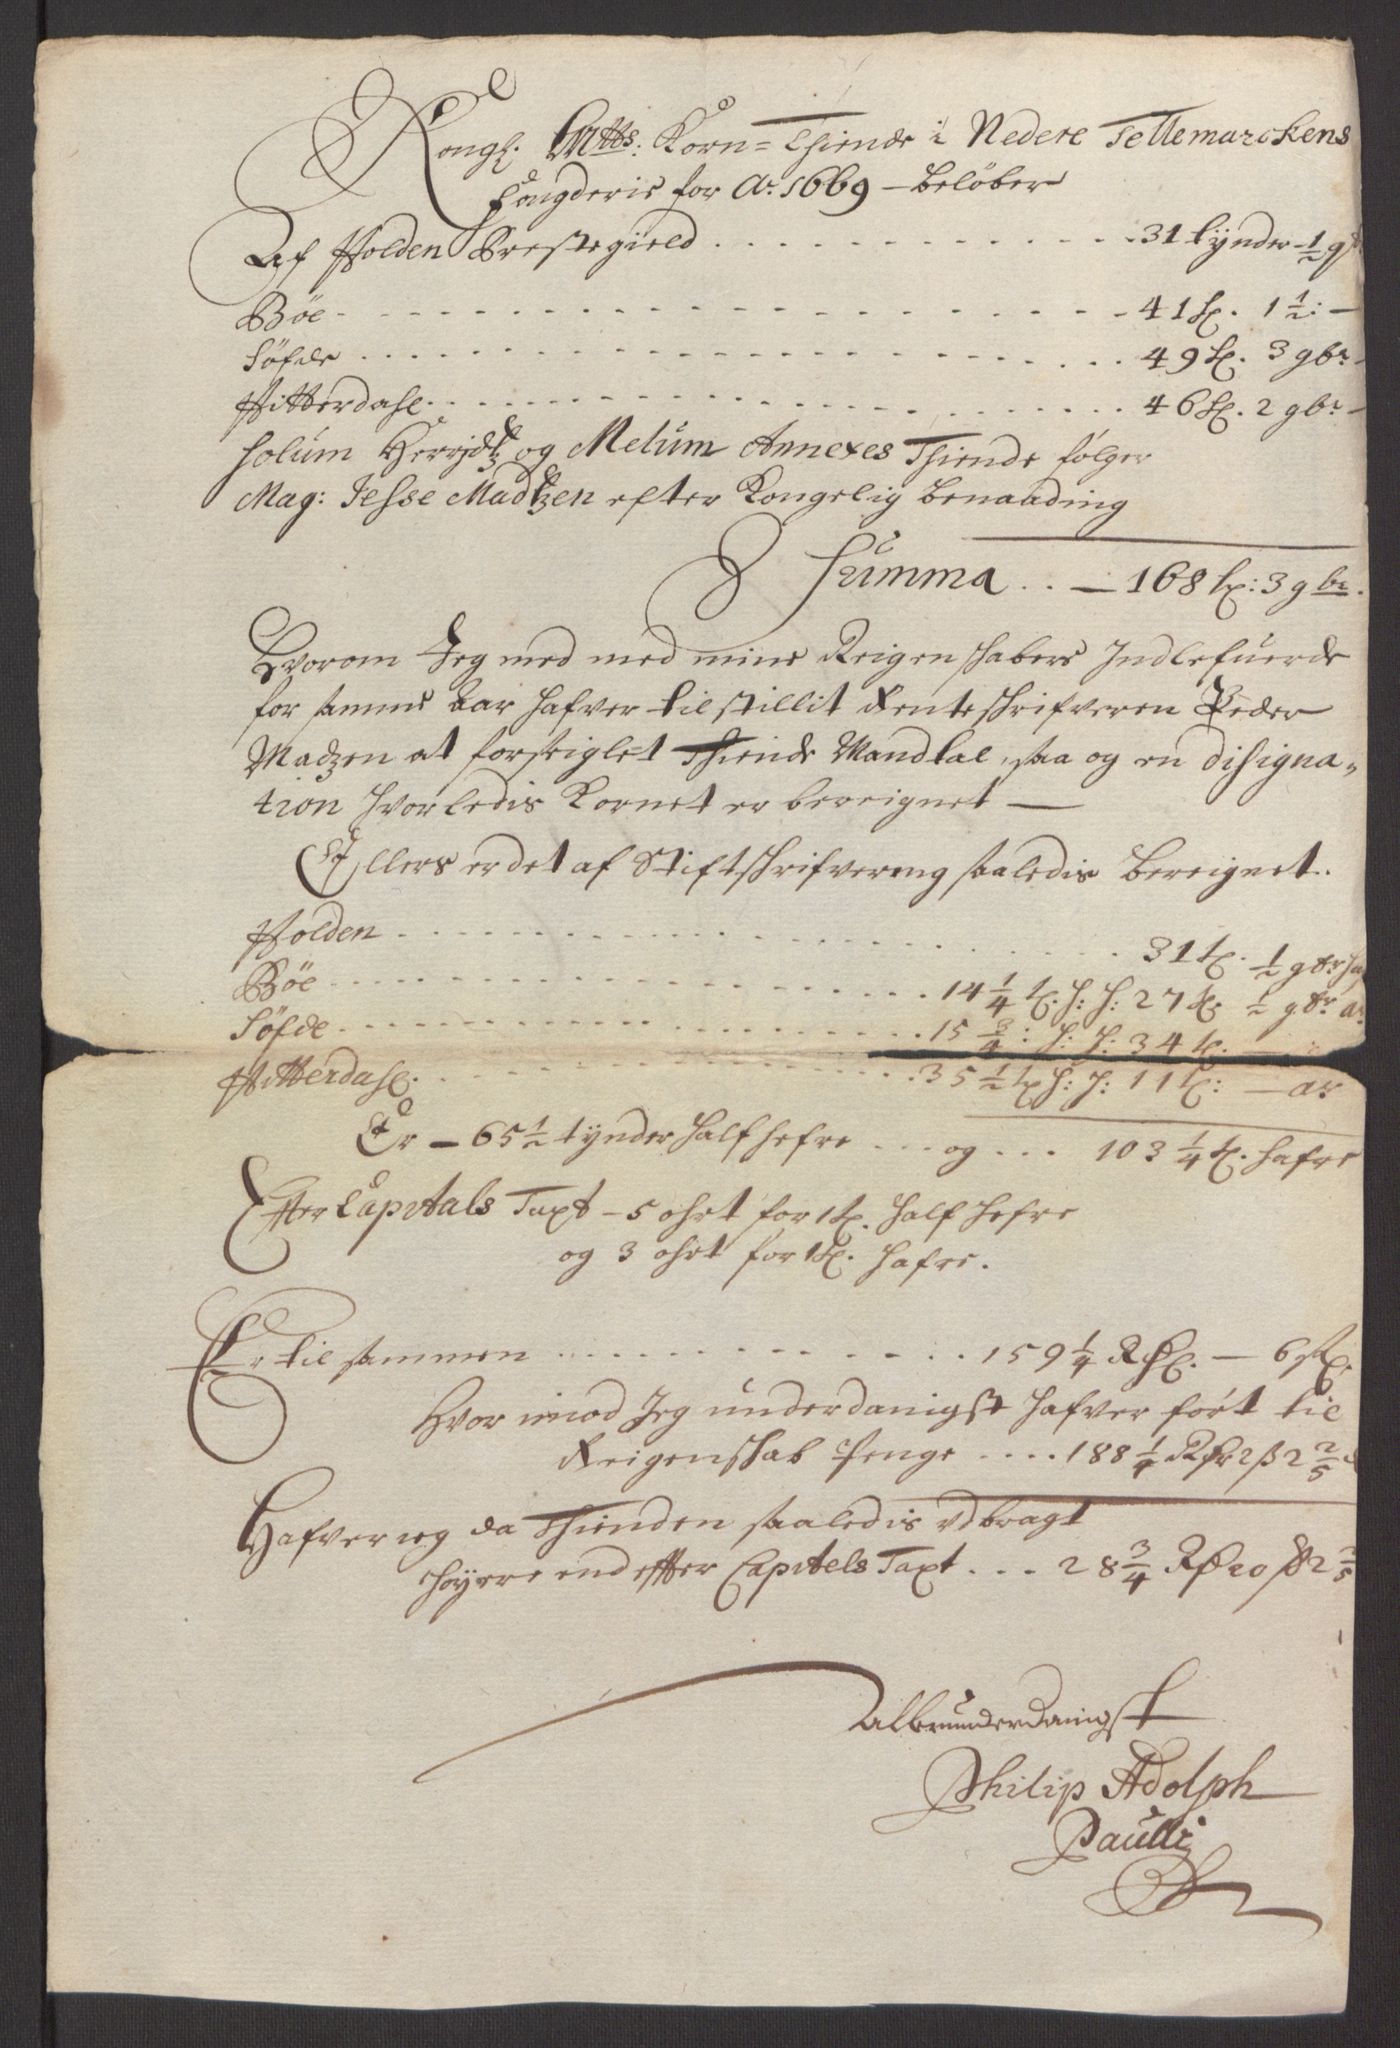 Kongl. Mtts: Korn=Thiende i Nedere Tellemarckens
fougderie for Ao. 1669 – beløber
Af Holden Prestegield . . . 31 tynder ½
Bøe . . . 41 tr. 1 ½: –
Søfde . . . 49 tr. 3 gbr –
Hitterdahl . . . 46 tr. 2 gbr –
Solum Herridtz og Melum Annexes Thiende følger
Mag: Jesse Madtzen efter Kongelig benaading
Summa . . – 168 tr: 3 gbr.
Hvorom Jeg med med mine Reigenskabers Indlefuerde
for samme Aar hafver tilstillit Renteschrifveren Peder
Madzen at forseiglet Thiende Mandtal, saa og en disigna-
tion hvorledis Kornet er bereignet —
Ellers er det af Stiftschrifvereng saaledis bereignet.
Holden . . . 31 tr. ½
Bøe . . . 14 ¼ tr. h: h: 27 tr. ½
Søfde . . . 15 ¾: h: h: 34 tr. –
Hitterdahl. . . . 35 ½ tr h: h: 11 tr: – ar
Er – 65 ½ tynder half hefre . . . og . . . 103 ¼ tr. hafre
Effter Capitals Taxt – 5 ohrt for 1 tr. half hefre
og 3 ohrt for 1 tr. hafre.
Er til sammen . . . 159 ¼ Rdl. – 6
Hvor imod Jeg underdanigst hafver ført til
Reigenschab Penge . . . . 188 ¼ Rdr 2 ß 2 2/5
Hafver ieg da Thienden saaledis vdbragt
høyere end effter Capitels Taxt . . . 28 ¾ Rd 20 ß 2 2/5
Allerunderdanigst
Philip Adolph
Paulli